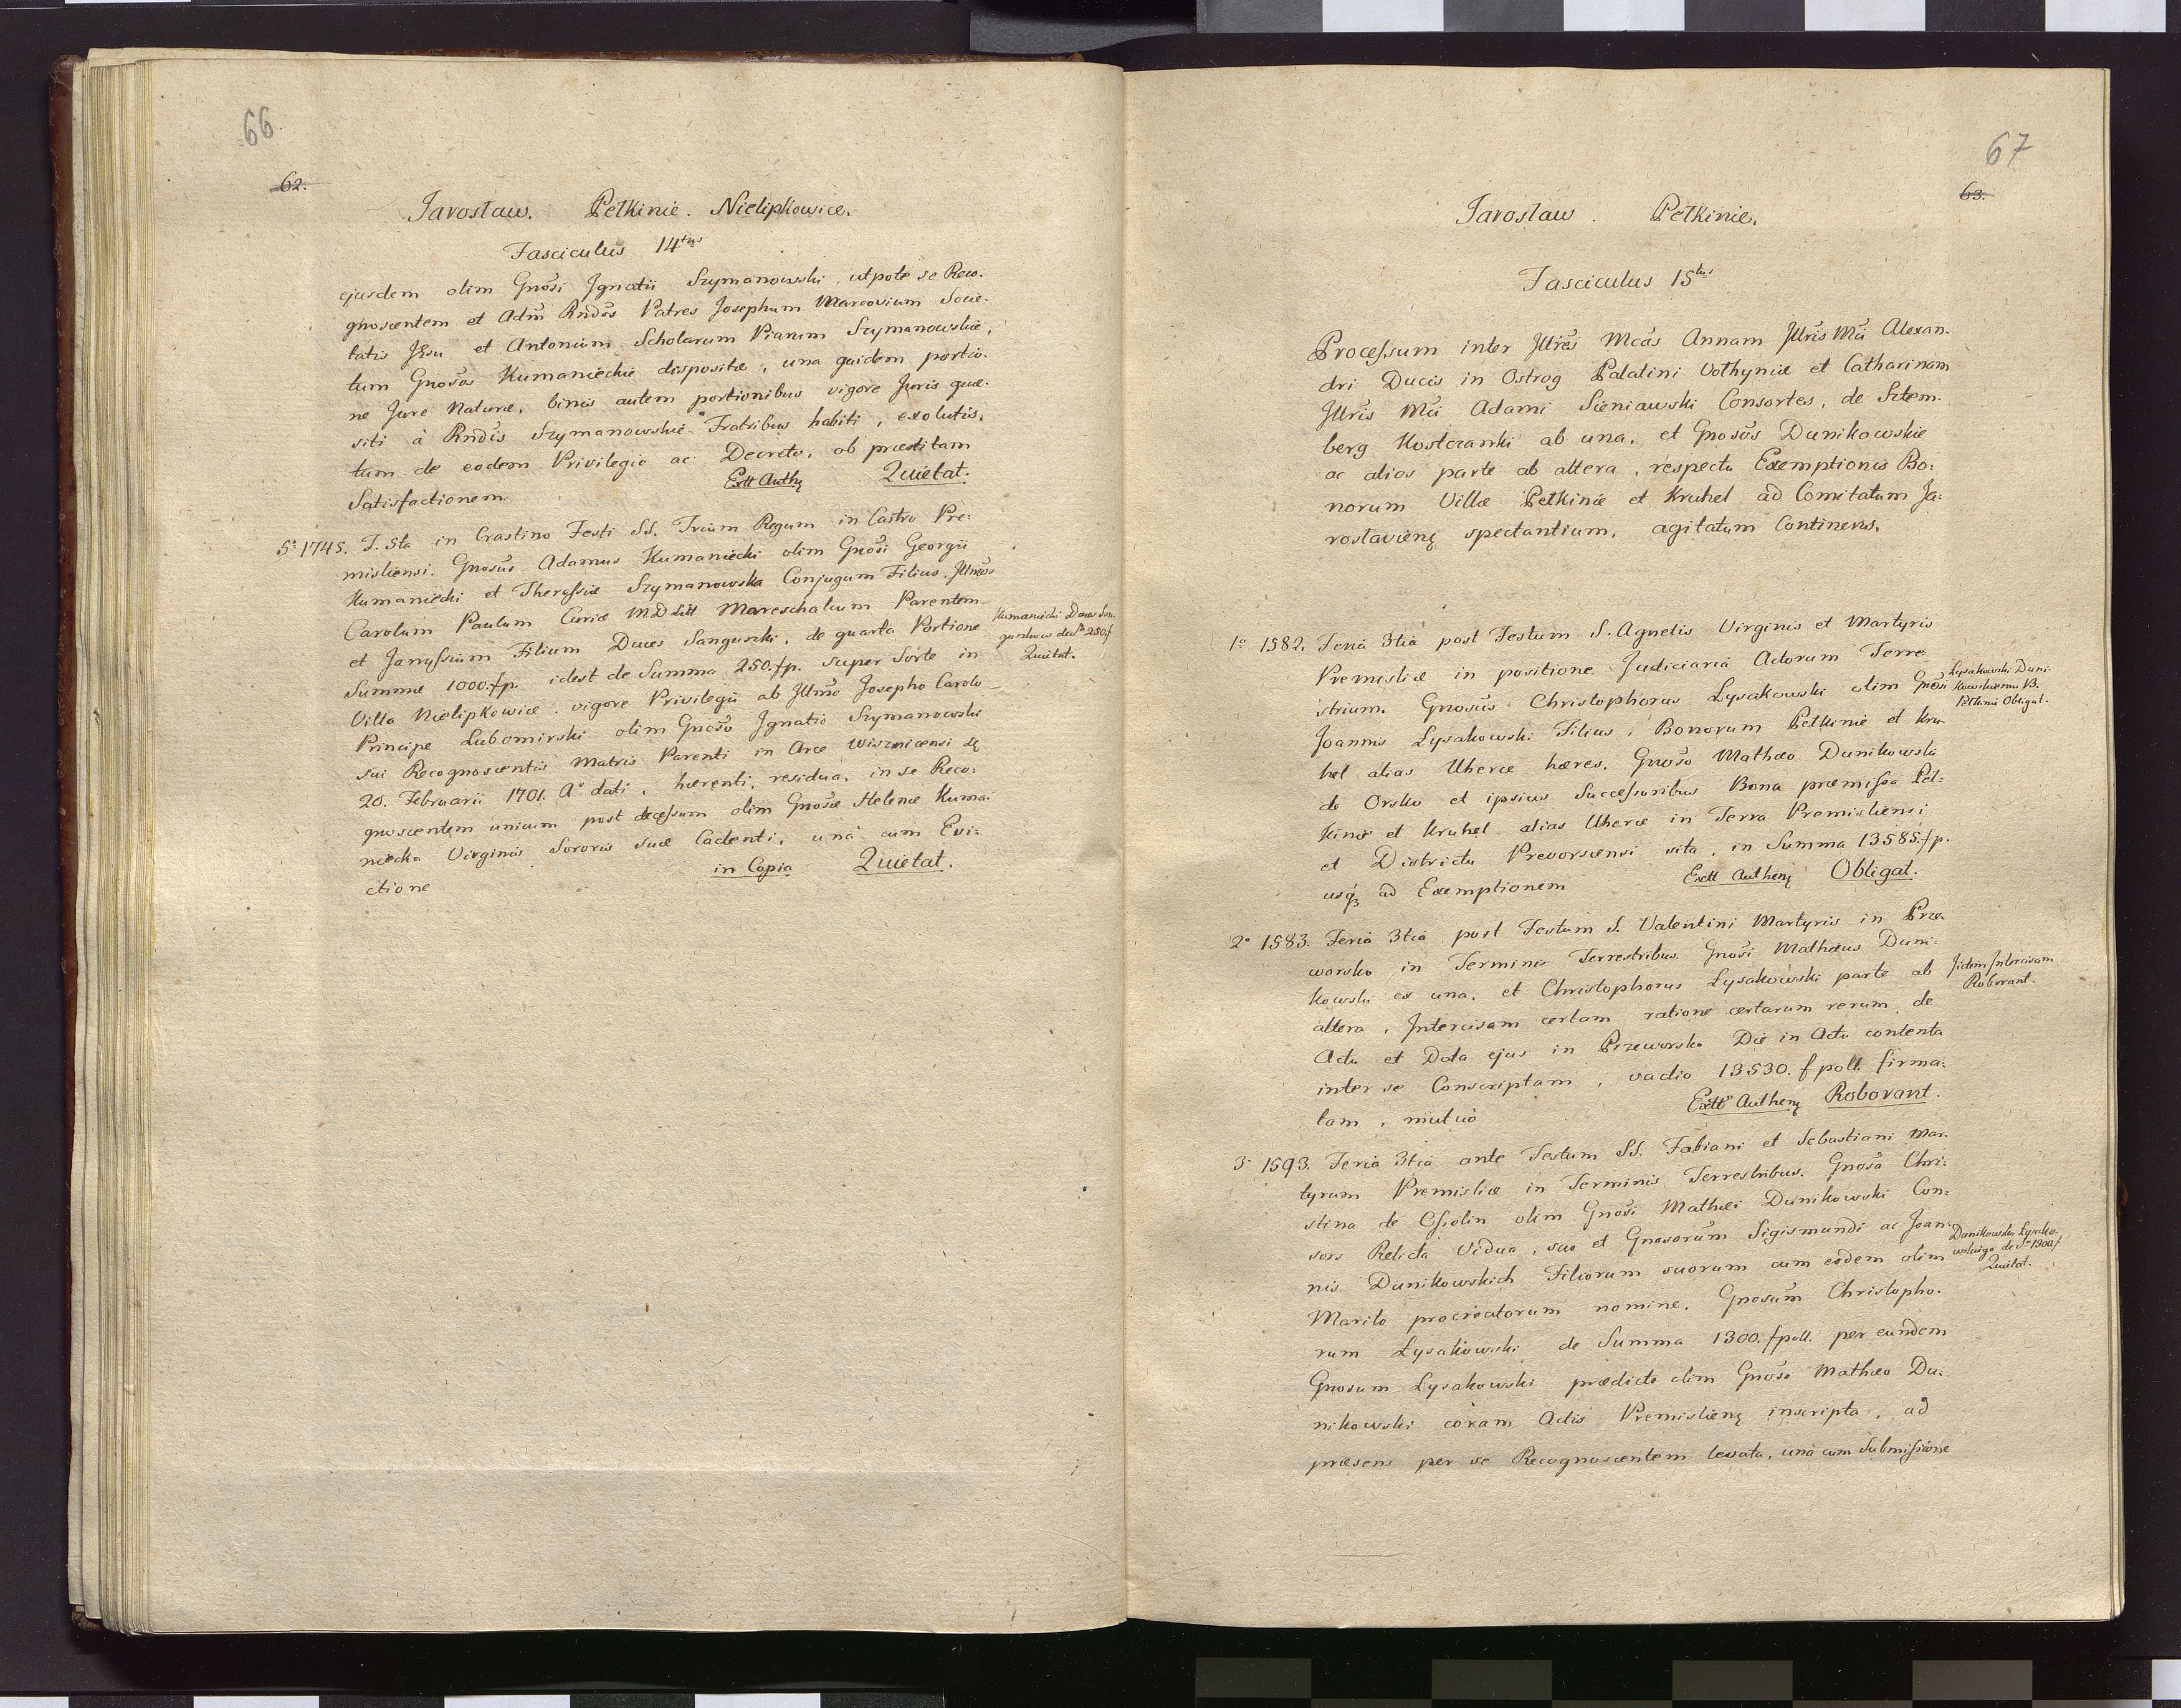 66
62.
Jarosław. Pełkinie. Nielipkowice.
Fasciculus 14tus
ejusdem olim Gnosi Ignatii Szymanowski, utpote se Reco-
gnoscentem et Adm Rndos Patres Josephum Marcovium Socie-
tatis Jesu et Antonium Scholarum Piarum Szymanowskie,
tum Gnosos Kumanieckie dispositæ, una quidem portio-
ne Jure Naturæ, binis autem portionibus vigore Juris quæ-
siti à Rndis Szymanowskie Fratribus habiti, exolutis,
tum de eodem Privilegio ac Decreto, ob præstitam
Satisfactionem Extt Authę Quietat.
5o 1745. F. 5ta in Crastino Festi SS. Trium Regum in Castro Pre-
misliensi. Gnosus Adamus Kumaniecki olim Gnosi Georgii
Kumaniecki et Theressiæ Szymanowska Conjugum Filius, Illmos
Carolum Paulum Curiæ MD Litt Mareschalcum Parentem
et Janussium Filium Duces Sanguszki, de quarta Portione
Summæ 1000.fp. idest de Summa 250.fp. super Sorte in
Villa Nielipkowice vigore Privilegii ab Illmo Josepho Carolo
Principe Lubomirski olim Gnoso Ignatio Szymanowski
sui Recognoscentis Matris Parenti in Arce Wisznicensi
20. Februarii 1701. Ao dati, hærenti, residua, in se Reco-
gnoscentem unicum post decessum olim Gnosæ Helenæ Kuma-
niecka Virginis Sororis suæ Cadenti, unà cum Evi-
ctione in Copia Quietat.
Kumaniecki Duces San-
guszkios de Sa 250f
Quietat.
67
63.
Jarosław. Pełkinie.
Fasciculus 15tus
Processum inter Illres Mcas Annam Illris Mci Alexan-
dri Ducis in Ostrog Palatini Volhyniæ et Catharinam
Illris Mci Adami Sieniawski Consortes, de Sztem-
berg Kostczanki ab una, et Gnosos Dunikowskie
ac alios parte ab altera, respectu Exemptionis Bo-
norum Villæ Pełkinie et Kruhel ad Comitatum Ja-
roslavienę spectantium, agitatum Continens.
1o 1582. Feria 3tia post Festum S. Agnetis Virginis et Martyris
Premisliæ in positione Judiciaria Actorum Terre
strium. Gnosus Christophorus Łysakowski olim Gnosi
Joannis Łysakowski Filius, Bonorum Pełkinie et Kru-
hel alias Uherce hæres, Gnoso Mathæo Dunikowski
de Orsko et ipsius Successoribus Bona præmissa Peł-
kinie et Kruhel alias Uherce in Terra Premisliensi
et Districtu Prevorscensi sita, in Summa 13585.fp.
usq3 ad Exemptionem Extt Authenę Obligat.
Łysakowski Duni-
kowskiemu B.
Pełkinie Obligat.
2o 1583. Feria 3tia post Festum S. Valentini Martyris in Prze-
worsko in Terminis Terrestribus. Gnosi Mathæus Duni-
kowski ex una, et Christophorus Łysakowski parte ab
altera, Intercisam certam ratione certarum rerum, de
Actu et Data ejus in Przeworsko Die in Actu contenta
inter se Conscriptam, vadio 13530. fpoll. firma-
tam, mutuò Extt Authenę Roborant.
Iidem Intercisam
Roborant.
3o 1593. Feria 3tia ante Festum SS. Fabiani et Sebastiani Mar-
tyrum Premisliæ in Terminis Terrestribus. Gnosa Chri-
stina de olim Gnosi Mathæi Dunikowski Con-
sors Relicta Vidua, suo et Gnosorum Sigismundi ac Joan-
nis Dunikowskich Filiorum suorum cum eodem olim
Marito procreatorum nomine, Gnosum Christopho-
rum Łysakowski de Summa 1300. fpoll. per eundem
Gnosum Łysakowski prædicto olim Gnoso Mathæo Du-
nikowski coram Actis Premislienę inscripta, ad
præsens per se Recognoscentem levata, unà cum Submissione
Dunikowska Łysako-
wskiego de Sa 1300f
Quietat.